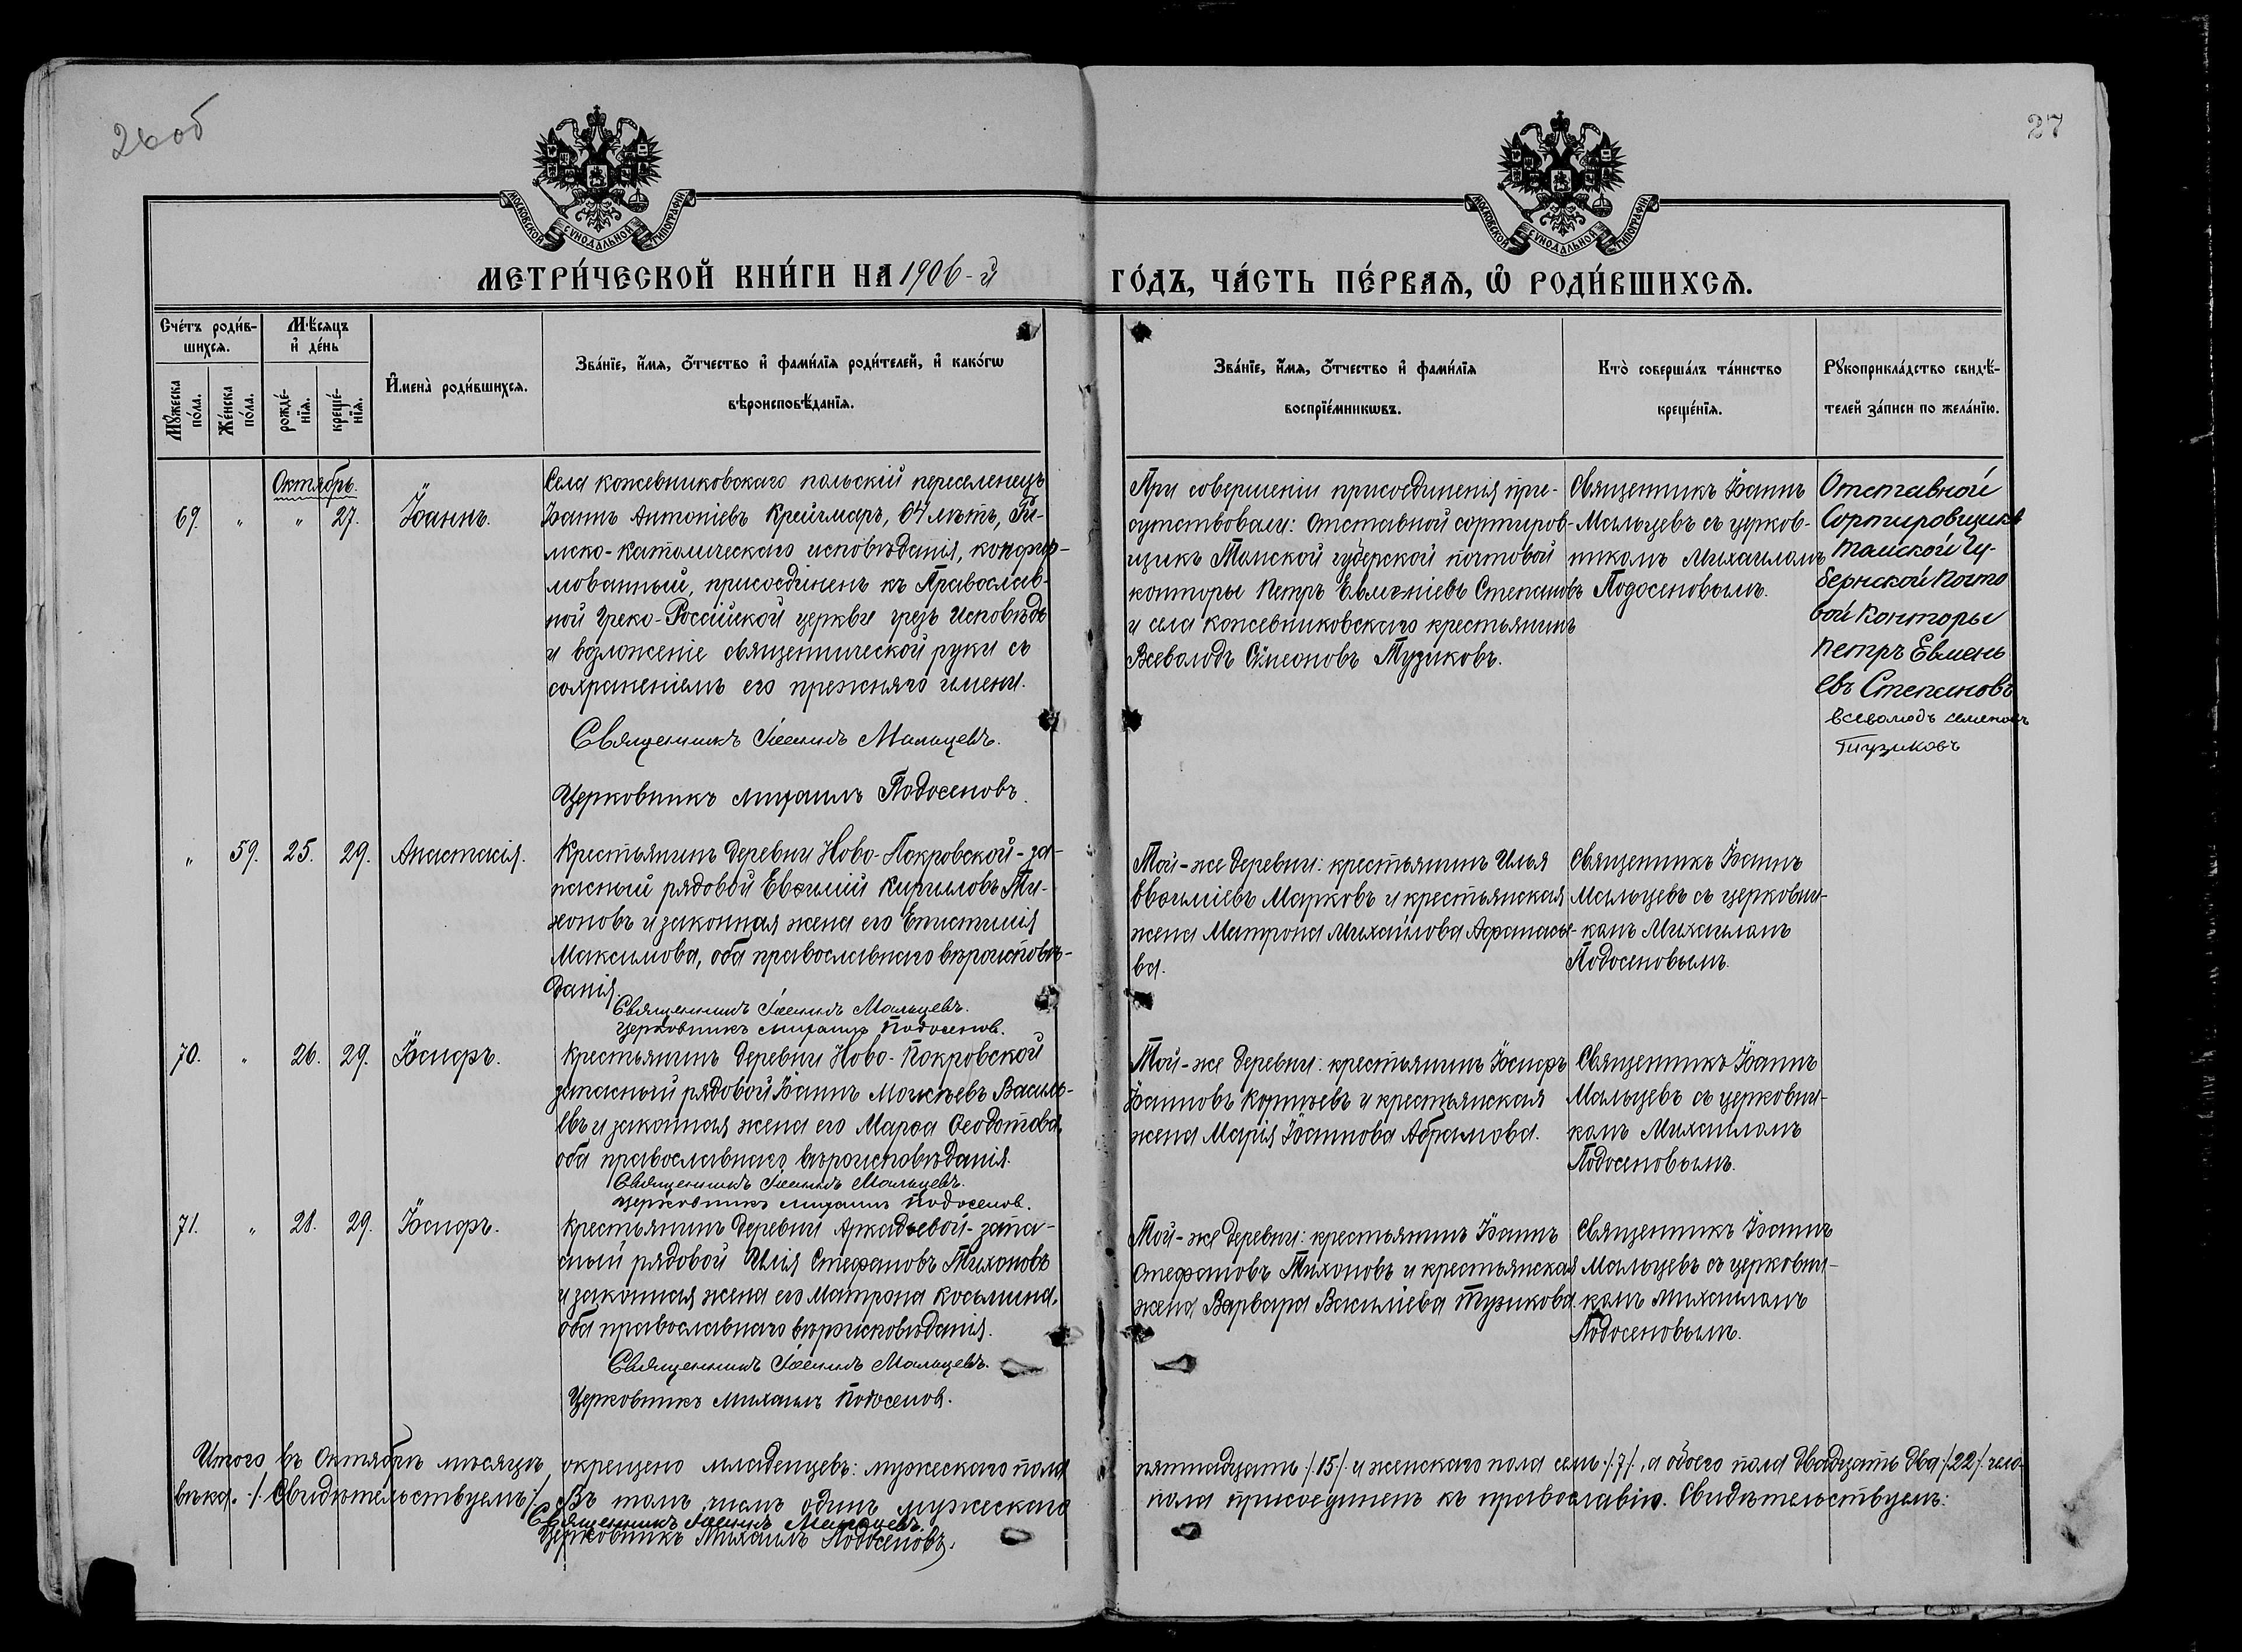 26об
27
МОСКОВСКОЙ СѴНОДАЛЬНОЙ ТИПОГРАФІИ
МОСКОВСКОЙ СѴНОДАЛЬНОЙ ТИПОГРАФІИ
МЕТРИ́ЧЕСКОЙ КНИ́ГИ НА 1906-й
ГО́ДЪ, ЧА́СТЬ ПЕ́РВАѦ, Ѡ РОДИ́ВШИХСѦ.
Сче́тъ роди́в-
шихсѧ.
Мѣ́сяцъ
и де́нь
Мꙋ́жеска
по́ла.
Же́нска
по́ла.
рожде́-
нїѧ.
креще́-
нїѧ.
И҆мена̀ роди́вшихсѧ.
Зва́нїе, и҆́мѧ, ѻ҆́тчество и҆ фами́лїѧ роди́телей, и҆ како́гѡ
вѣроисповѣ́данїѧ.
Зва́нїе, и҆́мѧ, ѻ҆́тчество и҆ фами́лїѧ
воспрїе́мникѡвъ.
Кто̀ соверша́лъ та́инство
креще́нїѧ.
Рꙋкоприкла́дство свидѣ́-
телей за́писи по жела́нїю.
Октябрь.
69. " " 27. Іоаннъ.
Села Кожевниковскаго польскій переселенецъ
Іоаннъ Антоніевъ Креймаръ, 64 лѣтъ, Ри-
мско-католическаго исповѣданія, конфир-
мованный, присоединенъ къ Православ-
ной Греко-Россійской церкви чрезъ Исповѣдь
и возложеніе священнической руки съ
сохраненіемъ его прежняго имени.
Священникъ Іоаннъ Мальцевъ.
Церковникъ Михаилъ Подосеновъ.
При совершеніи присоединенія при-
сутствовали: отставной сортиров-
щикъ Томской губерской почтовой
конторы Петръ Евменіевъ Степановъ
и села Кожевниковскаго крестьянинъ
Всеволодъ Симеоновъ Тузиковъ.
Священникъ Іоаннъ
Мальцевъ съ церков-
никомъ Михаиломъ
Подосеновымъ.
Отставной
Сортировщикъ
Томской Гу-
бернской Почто
вой Конторы
Петръ Евмень
евъ Степановъ
Всеволодъ Семеновъ
Тузиковъ
" 59. 25. 29. Анастасія.
Крестьянинъ деревни Ново-Покровской-за-
пасный рядовой Евѳимій Кирилловъ Ти-
хоновъ и законная жена его Епистимія
Максимова, оба православнаго вѣроисповѣ-
данія.
Священникъ Іоаннъ Мальцевъ.
Церковникъ Михаилъ Подосенов.
Той-же деревни: крестьянинъ Илья
Евѳиміевъ Марковъ и крестьянская
жена Матрона Михайлова Афанасье-
ва.
Священникъ Іоаннъ
Мальцевъ съ церковни-
комъ Михаиломъ
Подосеновымъ.
70. " 26. 29. Іосифъ.
Крестьянинъ деревни Ново-Покровской
запасный рядовой Іоаннъ Моисѣевъ Василь-
евъ и законная жена его Марѳа Ѳеодотова,
оба православнаго вѣроисповѣданія.
Священникъ Іоаннъ Мальцевъ.
Церковникъ Михаилъ Подосенов.
Той-же деревни: крестьянинъ Іосифъ
Іоанновъ Корнѣевъ и крестьянская
жена Марія Іоаннова Абрамова.
Священникъ Іоаннъ
Мальцевъ съ церковни-
комъ Михаиломъ
Подосеновымъ.
71. " 28. 29. Іосифъ.
Крестьянинъ деревни Аркадьевой-запа-
сный рядовой Илія Стефановъ Тихоновъ
и законная жена его Матрона Косьмина,
оба православнаго вѣроисповѣданія.
Священникъ Іоаннъ Мальцевъ.
Церковникъ Михаилъ Подосенов.
Той-же деревни: крестьянинъ Іоаннъ
Стефановъ Тихоновъ и крестьянская
жена Варвара Василіева Тузикова.
Священникъ Іоаннъ
Мальцевъ съ церковни-
комъ Михаиломъ
Подосеновымъ.
Итого въ Октябрѣ мѣсяцѣ окрещено младенцевъ: мужескаго пола пятнадцать /15/ и женскаго пола семь /7/, а обоего пола двадцать два /22/ чело-
вѣка. /Свидѣтельствуемъ:/ Въ томъ числѣ одинъ мужескаго пола присоединенъ къ православію. Свидѣтельствуемъ:
Священникъ Іоаннъ Мальцевъ.
Церковникъ Михаилъ Подосеновъ.